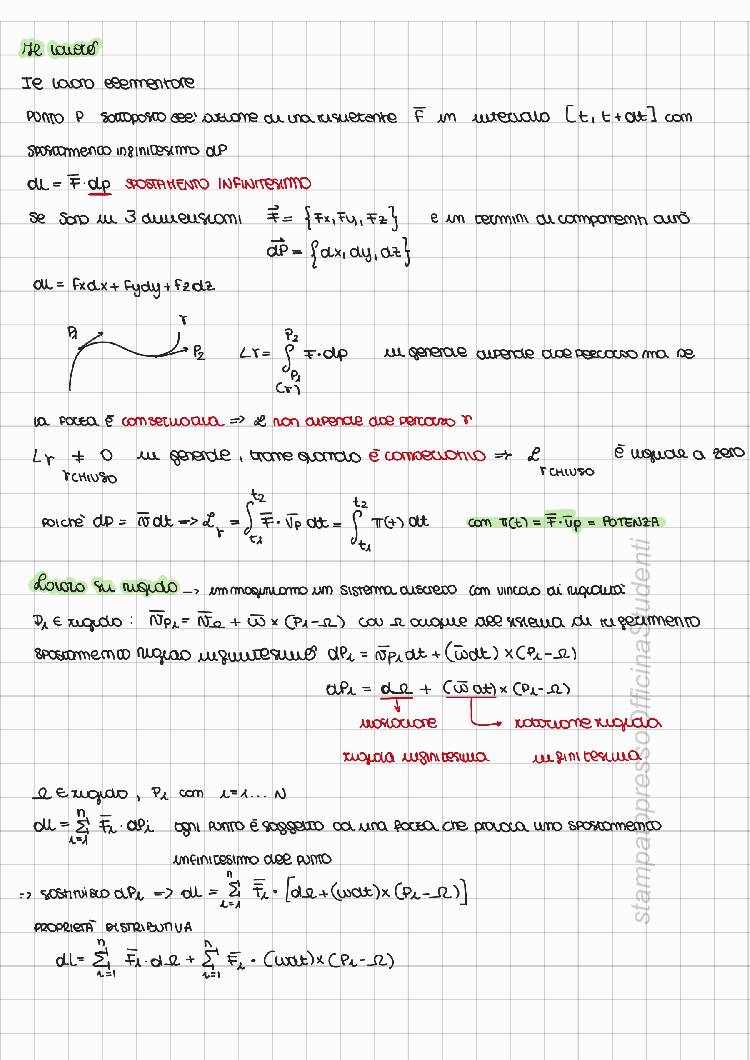 Il lavoro
Il lavoro elementare
PUNTO P sottoposto all'azione di una risultante F̅ in intervallo [t, t+dt] con
spostamento infinitesimo dP
dL = F̅ · dp SPOSTAMENTO INFINITESIMO
se sono in 3 dimensioni F⃗ = {Fx, Fy, Fz} e in termini di componenti avrò
dP⃗ = {dx, dy, dz}
dL = Fxdx + Fydy + Fzdz
P₁ r P₂ Lr = ∫_{P₁ (r)}^{P₂} F · dp in generale dipende dal percorso ma se
la forza è conservativa => L non dipende dal percorso r
Lr ≠ 0 in generale, tranne quando è conservativo => L è uguale a zero
r CHIUSO r CHIUSO
Poiché dP = v̅ dt => L_r = ∫_{t₁}^{t₂} F̅ · v̅p dt = ∫_{t₁}^{t₂} π(t) dt con π(t) = F̅ · v̅p = POTENZA
Lavoro su rigido -> immaginiamo un sistema discreto con vincolo di rigidità:
Pi ∈ rigido : v̅Pi = v̅Ω + ω̅ × (Pi - Ω) con Ω origine del sistema di riferimento
spostamento rigido infinitesimo dPi = v̅Pi dt + (ω̅dt) × (Pi - Ω)
dPi = dΩ + (ω̅ dt) × (Pi - Ω)
traslazione rotazione rigida
rigida infinitesima infinitesima
Ω ∈ rigido, Pi con i = 1 ... N
dL = Σ_{i=1}^{n} F̅i · dPi ogni punto è soggetto ad una forza che provoca uno spostamento
infinitesimo del punto
=> sostituisco dPi => dL = Σ_{i=1}^{n} F̅i · [dΩ + (ωdt) × (Pi - Ω)]
PROPRIETÀ DISTRIBUTIVA
dL = Σ_{i=1}^{n} F̅i · dΩ + Σ_{i=1}^{n} F̅i · (ωdt) × (Pi - Ω)
stampatopressoOfficinaStudenti